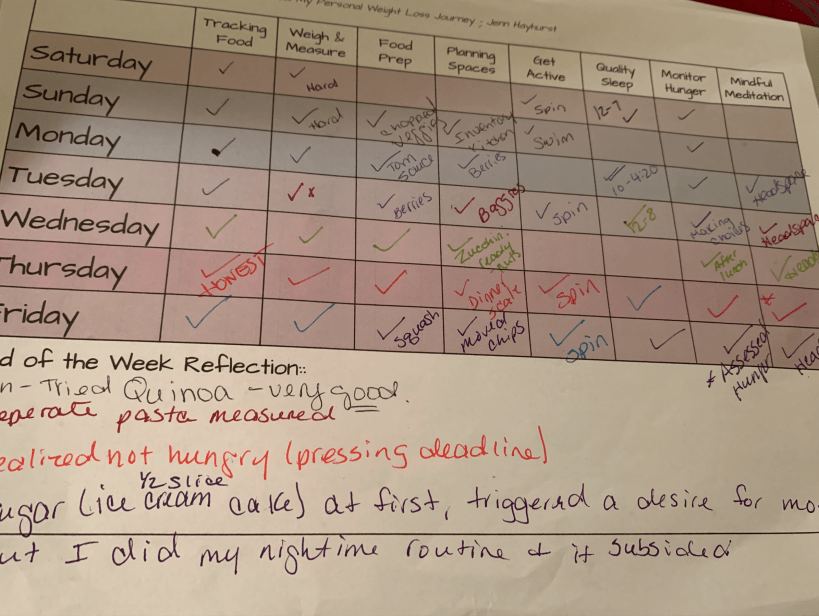 My Personal Weight Loss Journey ; Jenn Hayhurst
Tracking Food Weigh & Measure Food Prep Planning Spaces Get Active Quality Sleep Monitor Hunger Mindful Meditation
Saturday ✓ ✓ Hard
Sunday ✓ ✓ Hard ✓ chopped veggies ✓ Inventory Kitchen ✓ Spin 12-7 ✓ ✓
Monday ✓ ✓ ✓ Tom sauce ✓ Berries ✓ Swim ✓
Tuesday ✓ ✓ x ✓ Berries ✓ Baggies ✓ Spin ✓ 10-4:20 ✓ ✓ Headspace
Wednesday ✓ ✓ ✓ ✓ Zucchini ready ✓ 12-8 ✓ Making choices ✓ Headspace
Thursday ✓ HONEST ✓ ✓ ✓ Dinner scale ✓ Spin ✓ ✓ After lunch ✓
Friday ✓ ✓ ✓ Squash ✓ moved chips ✓ Spin ✓ ✓ * Assessed Hunger ✓ Hea
d of the Week Reflection::
n - Tried Quinoa - very good.
eperate pasta measured
ealized not hungry (pressing deadline)
1/2 slice
ugar (ice cream cake) at first, triggered a desire for mo
ut I did my nightime routine & it subsided